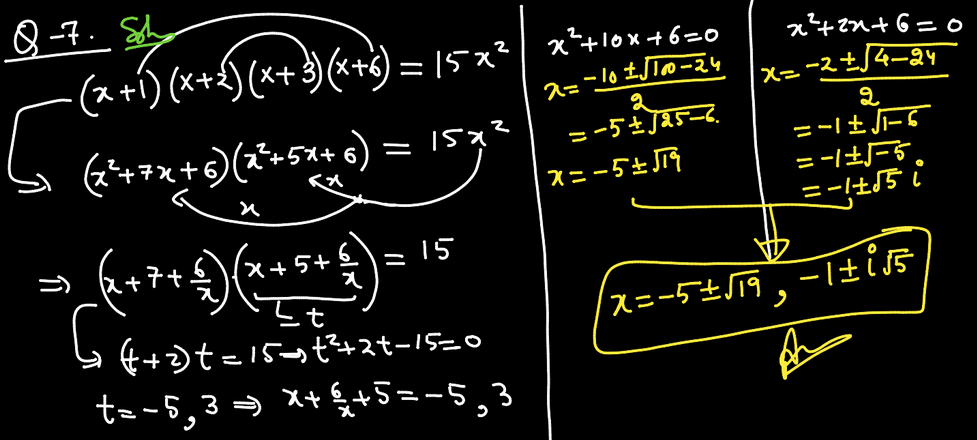 Q-7. Soln
(x+1)(x+2)(x+3)(x+6) = 15x²
(x²+7x+6)(x²+5x+6) = 15x²
x x
⇒ (x+7+6/x)·(x+5+6/x) = 15
t
(t+2)t = 15 → t²+2t-15=0
t=-5,3 ⇒ x+6/x+5=-5,3
x²+10x+6=0
x=(-10±√(100-24))/2
=-5±√(25-6)
x=-5±√19
x²+2x+6=0
x=(-2±√(4-24))/2
=-1±√(1-6)
=-1±√-5
=-1±√5 i
x=-5±√19, -1±i√5